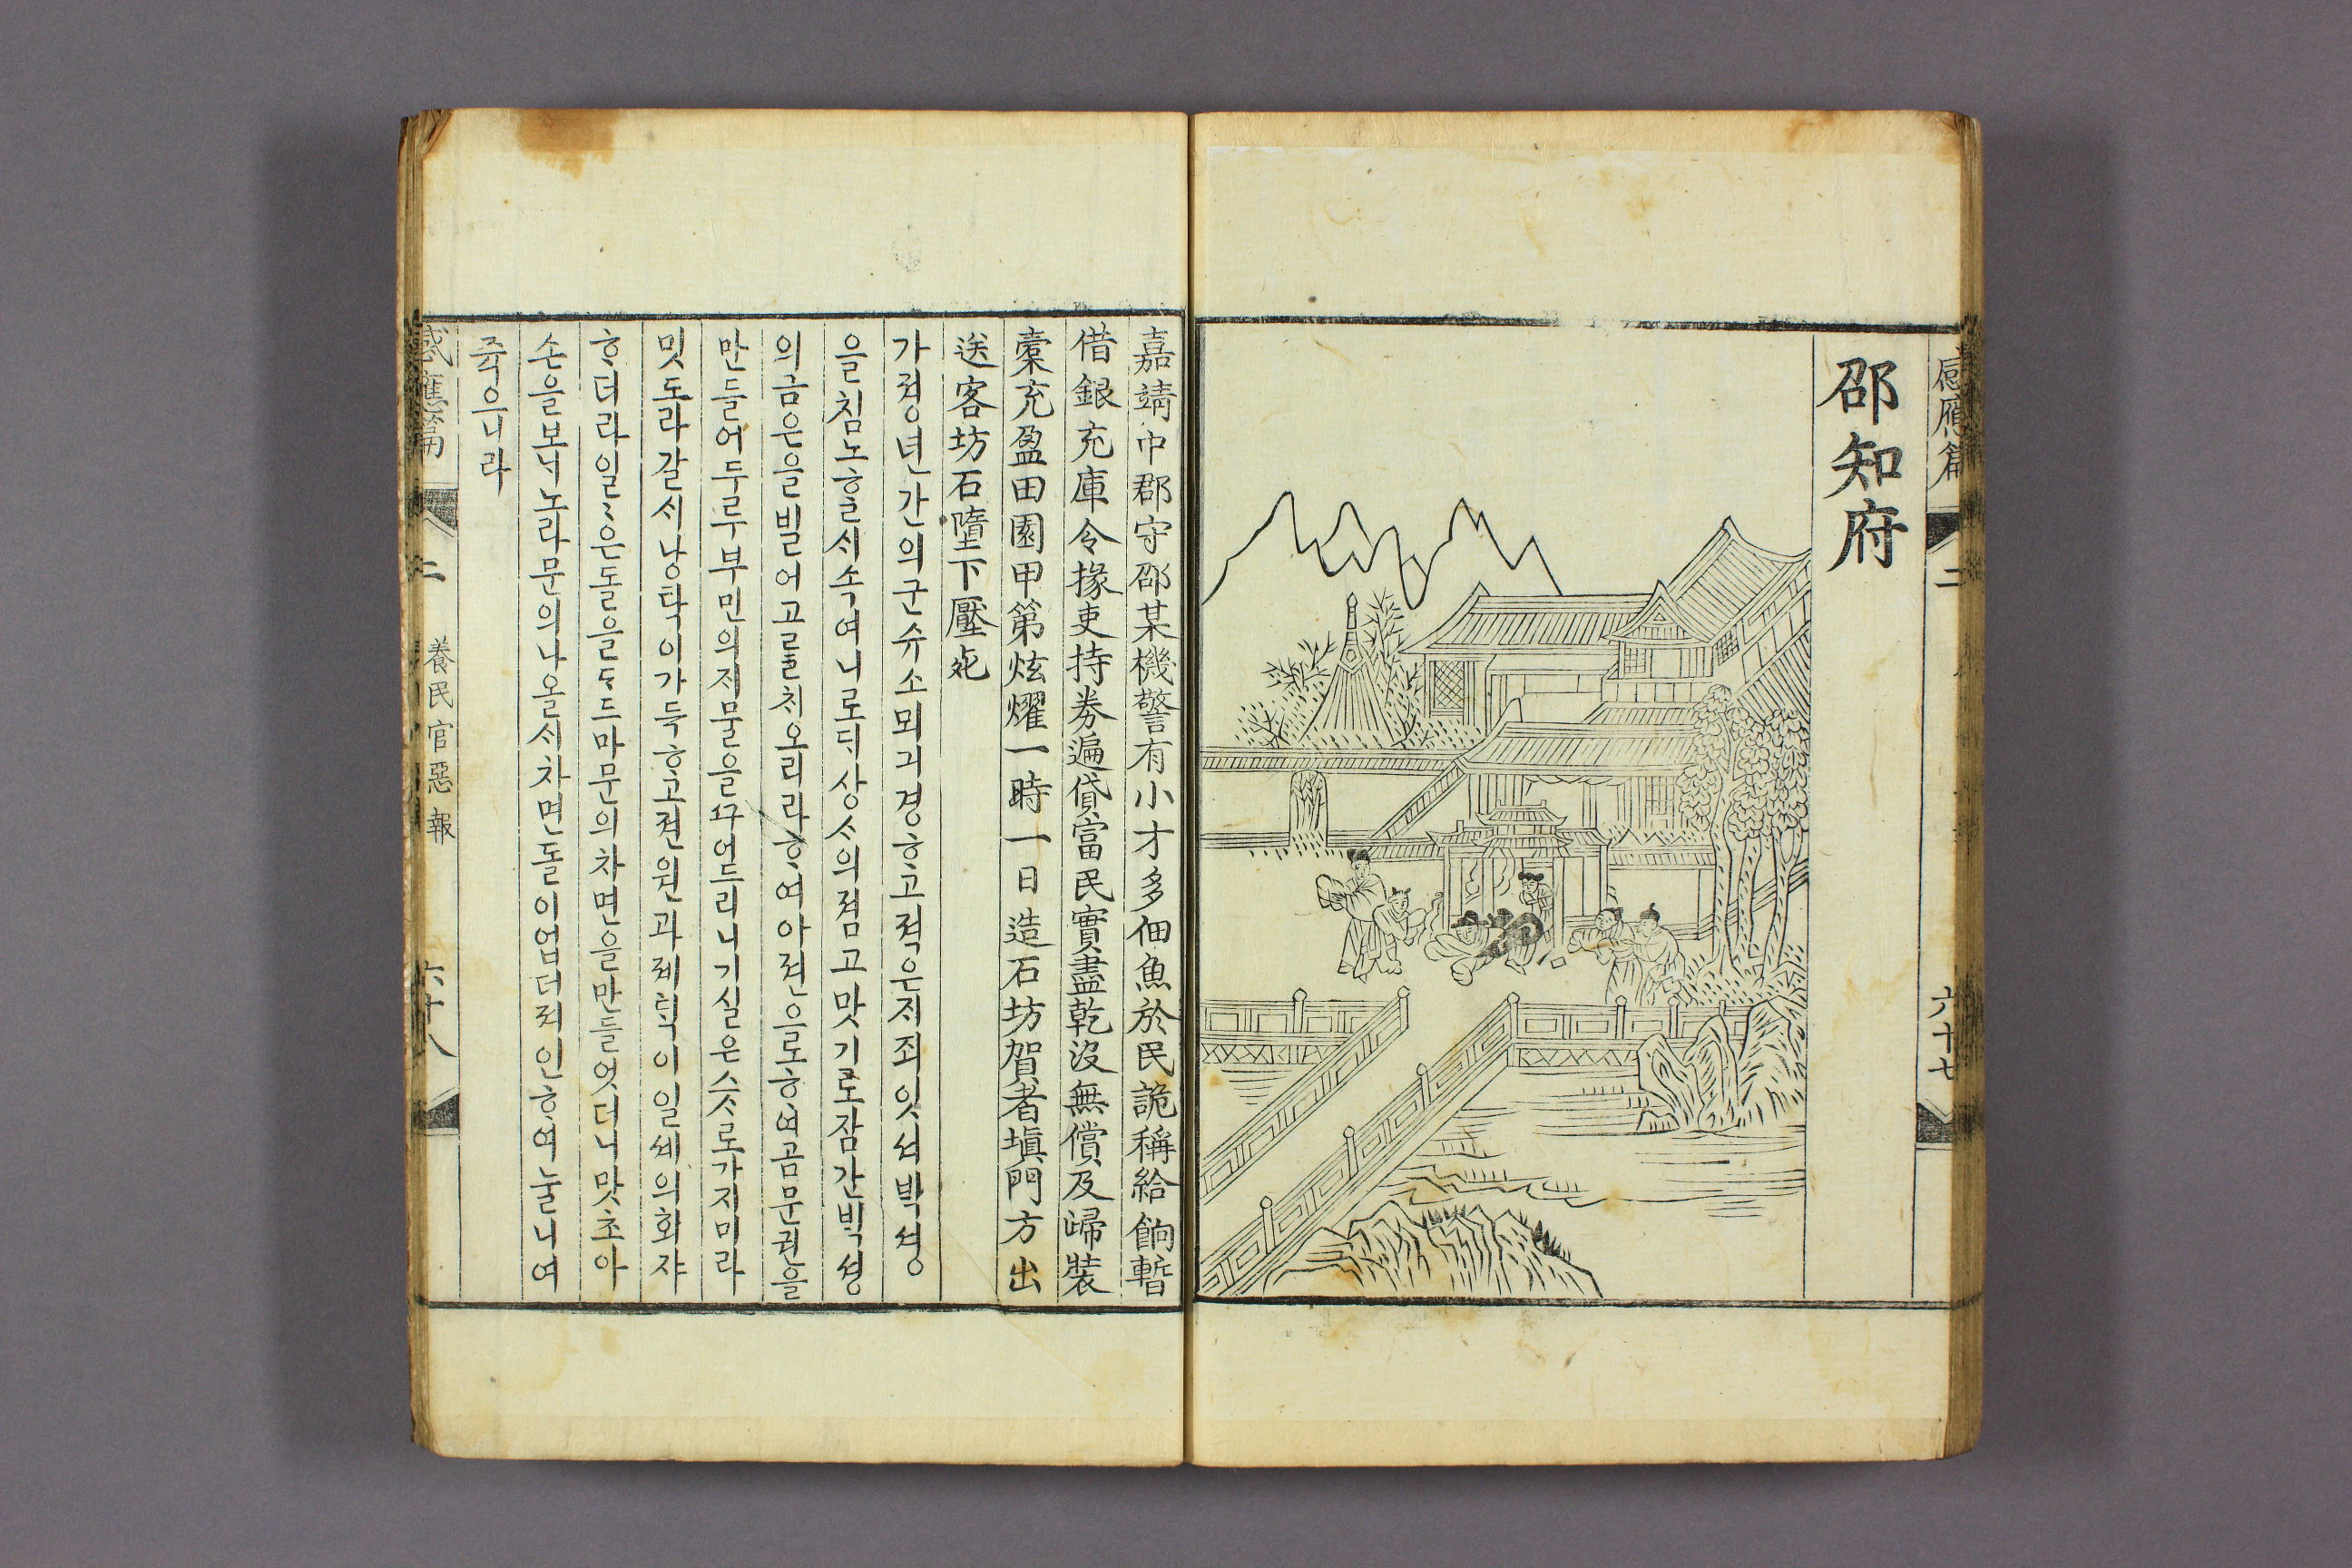 感應篇
二
六十七
邵知府
嘉靖中郡守邵某機警有小才多佃魚於民詭稱給餉暫
借銀充庫令掾吏持券遍貸富民實盡乾沒無償及歸裝
橐充盈田園甲第炫燿一時一日造石坊賀者塡門方出
送客坊石墮下壓死
가졍년간의군슈소뫼긔경ᄒᆞ고젹은ᄌᆡ죄잇셔ᄇᆡᆨ셩
을침노ᄒᆞᆯᄉᆡ속여니로ᄃᆡ상ᄉᆞ의졈고맛기로잠간ᄇᆡᆨ셩
의금은을빌어고ᄅᆞᆯᄎᆡ오리라ᄒᆞ여아젼으로ᄒᆞ여곰문권을
만들어두루부민의ᄌᆡ물을ᄭᅮ어드리니기실은스ᄉᆞ로가지미라
밋도라갈ᄉᆡ낭탁이가득ᄒᆞ고젼원과졔ᄐᆡᆨ이일셰의회쟈
ᄒᆞ더라일〻은돌을ᄃᆞ드마문의차면을만들엇더니맛초아
손을보ᄂᆡ노라문의나올ᄉᆡ차면돌이업더져인ᄒᆞ여눌니여
쥭으니라
感應篇
二
養民官惡報
六十八